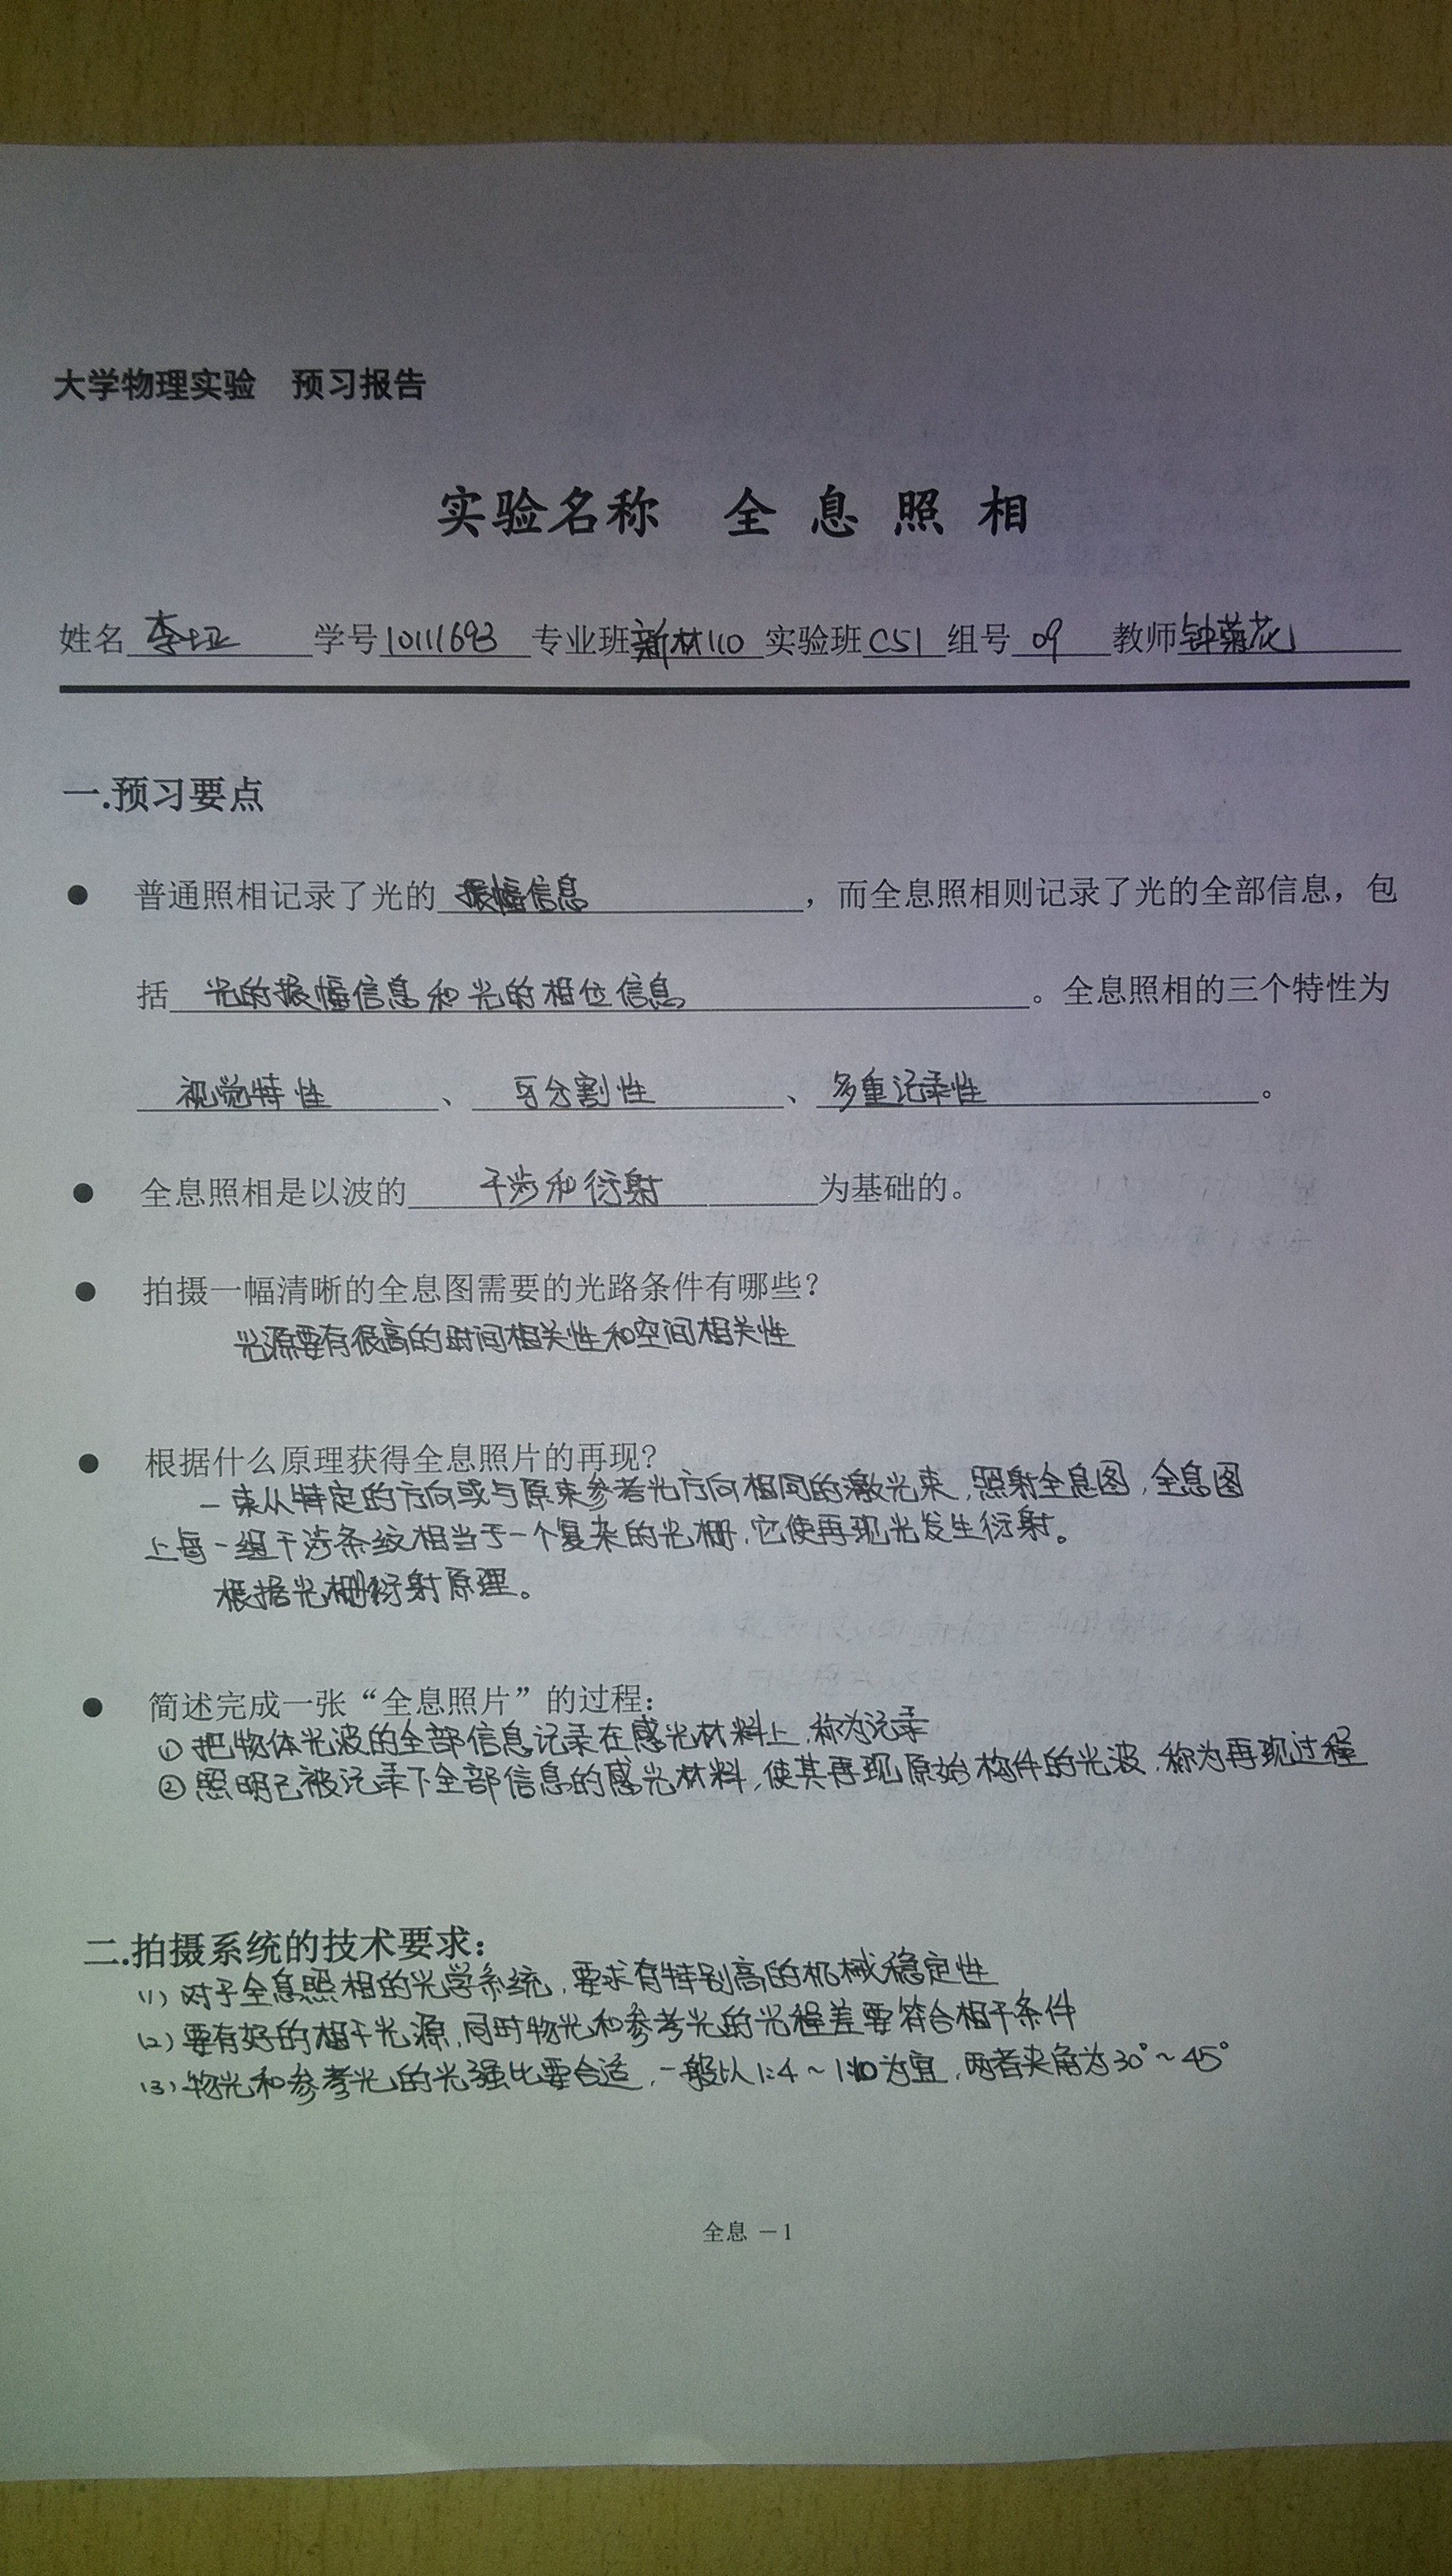 大学物理实验 预习报告
实验名称 全息照相
姓名 李 学号10111693 专业班新材110 实验班C51 组号 09 教师钟菊花
一.预习要点
● 普通照相记录了光的 振幅信息 ，而全息照相则记录了光的全部信息，包
括 光的振幅信息和光的相位信息 。全息照相的三个特性为
视觉特性 、 可分割性 、 多重记录性 。
● 全息照相是以波的 干涉和衍射 为基础的。
● 拍摄一幅清晰的全息图需要的光路条件有哪些？
光源要有很高的时间相关性和空间相关性
● 根据什么原理获得全息照片的再现？
一束从特定的方向或与原来参考光方向相同的激光束，照射全息图，全息图
上每一组干涉条纹相当于一个复杂的光栅，它使再现光发生衍射。
根据光栅衍射原理。
● 简述完成一张“全息照片”的过程：
① 把物体光波的全部信息记录在感光材料上，称为记录
② 照明已被记录下全部信息的感光材料，使其再现原始构件的光波，称为再现过程
二.拍摄系统的技术要求：
(1) 对于全息照相的光学系统，要求有特别高的机械稳定性
(2) 要有好的相干光源，同时物光和参考光的光程差要符合相干条件
(3) 物光和参考光的光强比要合适，一般以1:4～1:10为宜，两者夹角为30°～45°
全息 －1